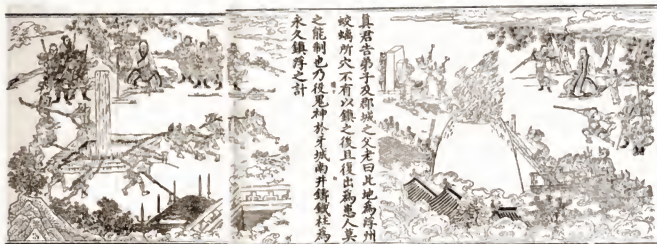 真君告弟子及郡城之父老曰此地為浮州
蛟螭所穴不有以鎮之後且復出為患人莫
之能制也乃役鬼神於牙城南井鑄鐵柱為
永久鎮浮之計